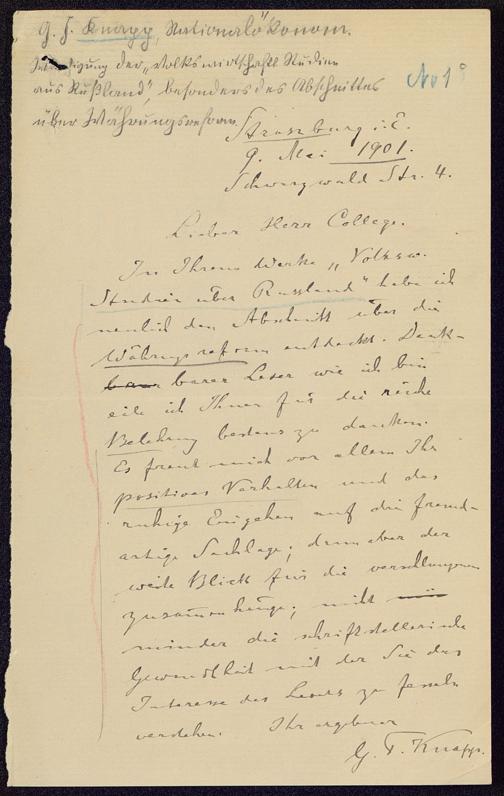 G. F. Knapp, Nationalökonom.
Würdigung der „Volkswirtschaftl Studien
aus Rußland", besonders des Abschnittes
über Währungsreform.
No 1
Strassburg i. E.
9. Mai 1901.
Schwarzwald Str. 4.
Lieber Herr College.
In Ihrem Werke „Volksw.
Studien über Russland" habe ich
neulich den Abschnitt über die
Währungsreform entdeckt. Dank-
barer Leser wie ich bin
eile ich Ihnen für die reiche
Belehrung bestens zu danken.
Es freut mich vor allem Ihr
positives Verhalten und das
ruhige Eingehen auf die fremd-
artige Sachlage; dann aber der
weite Blick für die verschlungenen
Zusammenhänge; nicht
minder die schriftstellerische
Gewandtheit mit der Sie das
Interesse des Lesers zu fesseln
verstehen. Ihr ergebener
G. F. Knapp.